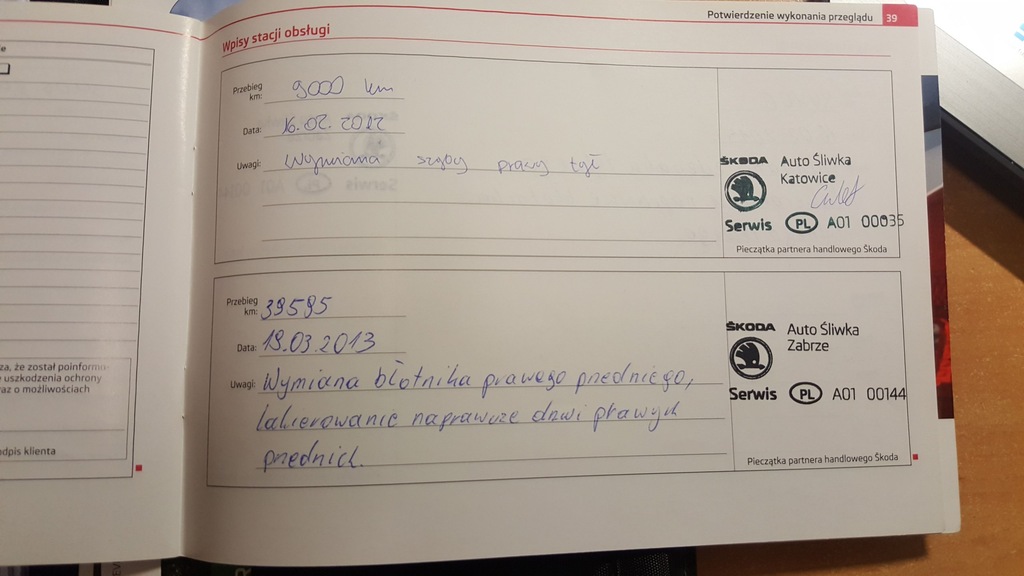 Potwierdzenie wykonania przeglądu 39
Wpisy stacji obsługi
Przebieg km: 9000 km
Data: 16.02.2012
Uwagi: Wymiana szyby prawy tył
ŠKODA Auto Śliwka
Katowice
Serwis PL A01 00035
Pieczątka partnera handlowego Škoda
Przebieg km: 39595
Data: 19.03.2013
Uwagi: Wymiana błotnika prawego przedniego,
lakierowanie naprawcze drzwi prawych
przednich.
ŠKODA Auto Śliwka
Zabrze
Serwis PL A01 00144
Pieczątka partnera handlowego Škoda
za, że został poinformo-
uszkodzenia ochrony
az o możliwościach
dpis klienta